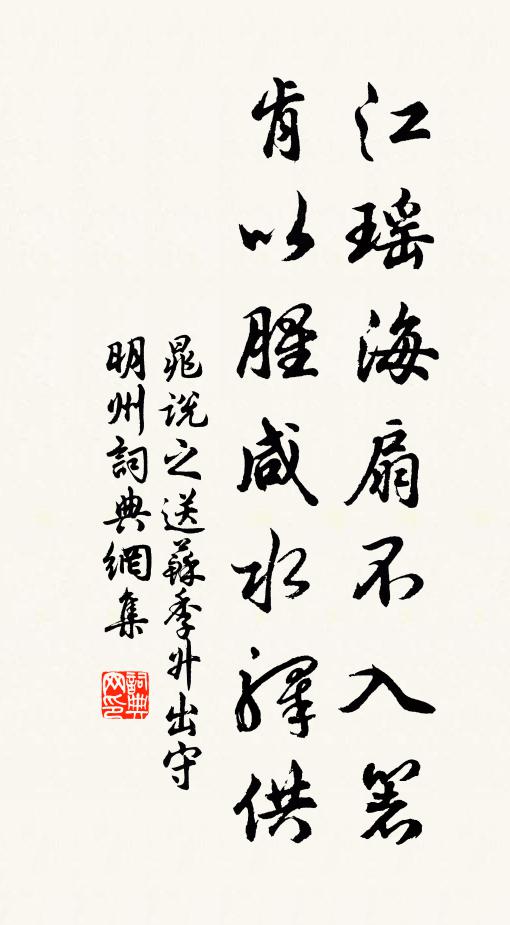 江瑶海扇不入箸
肯以腥咸水驛供
晁説之送蘇季升出守
明州詞典網集
詞典
网印